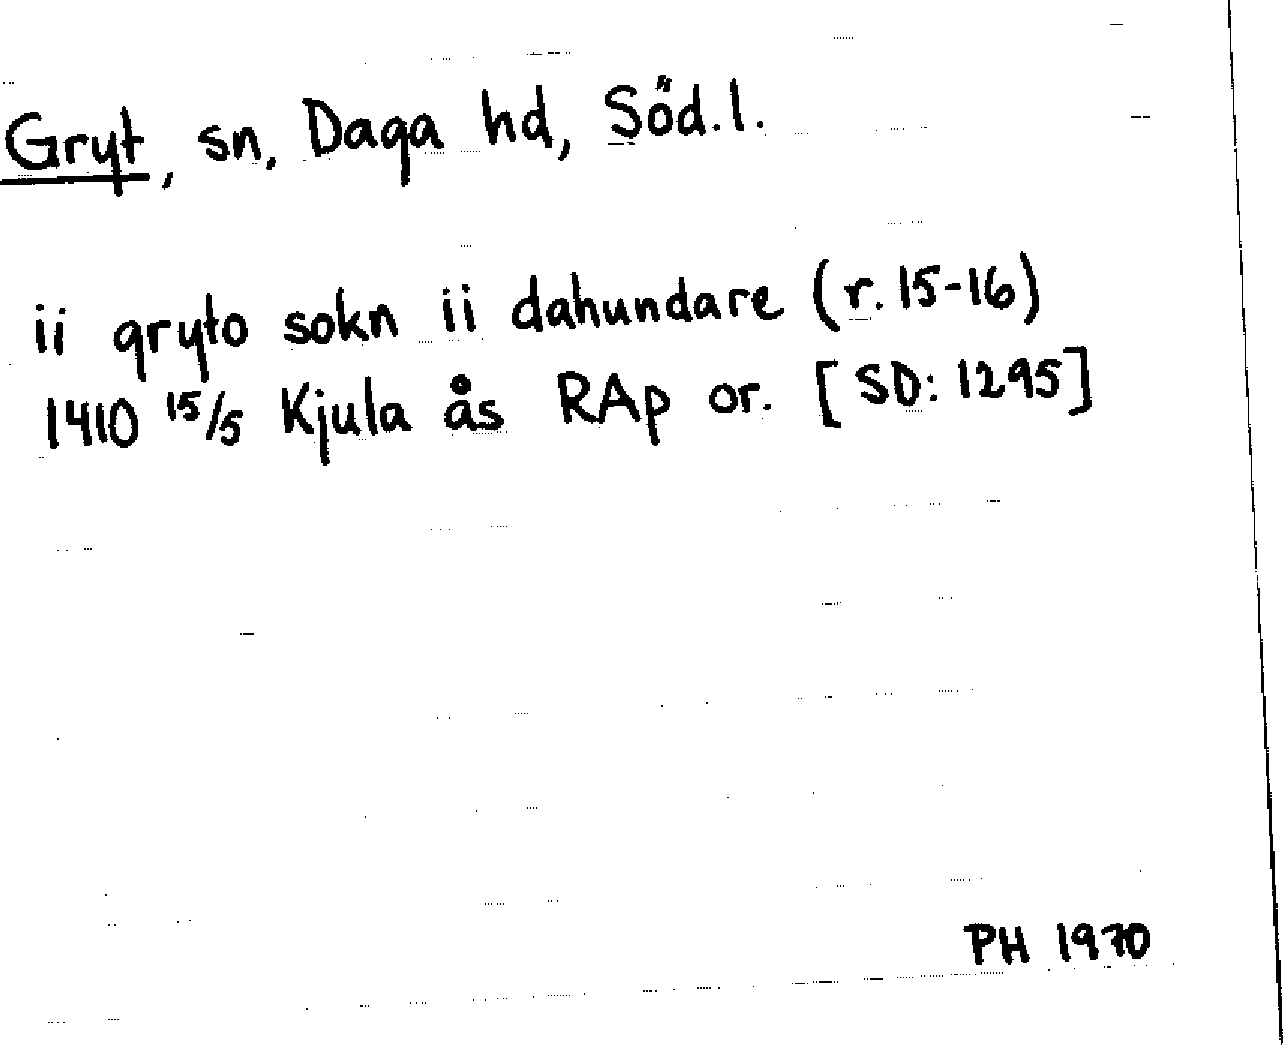 Gryt, sn, Daga hd, Söd.l.
ii gryto sokn ii dahundare (r. 15-16)
1410 15/5 Kjula ås RAp or. [SD: 1295]
PH 1970